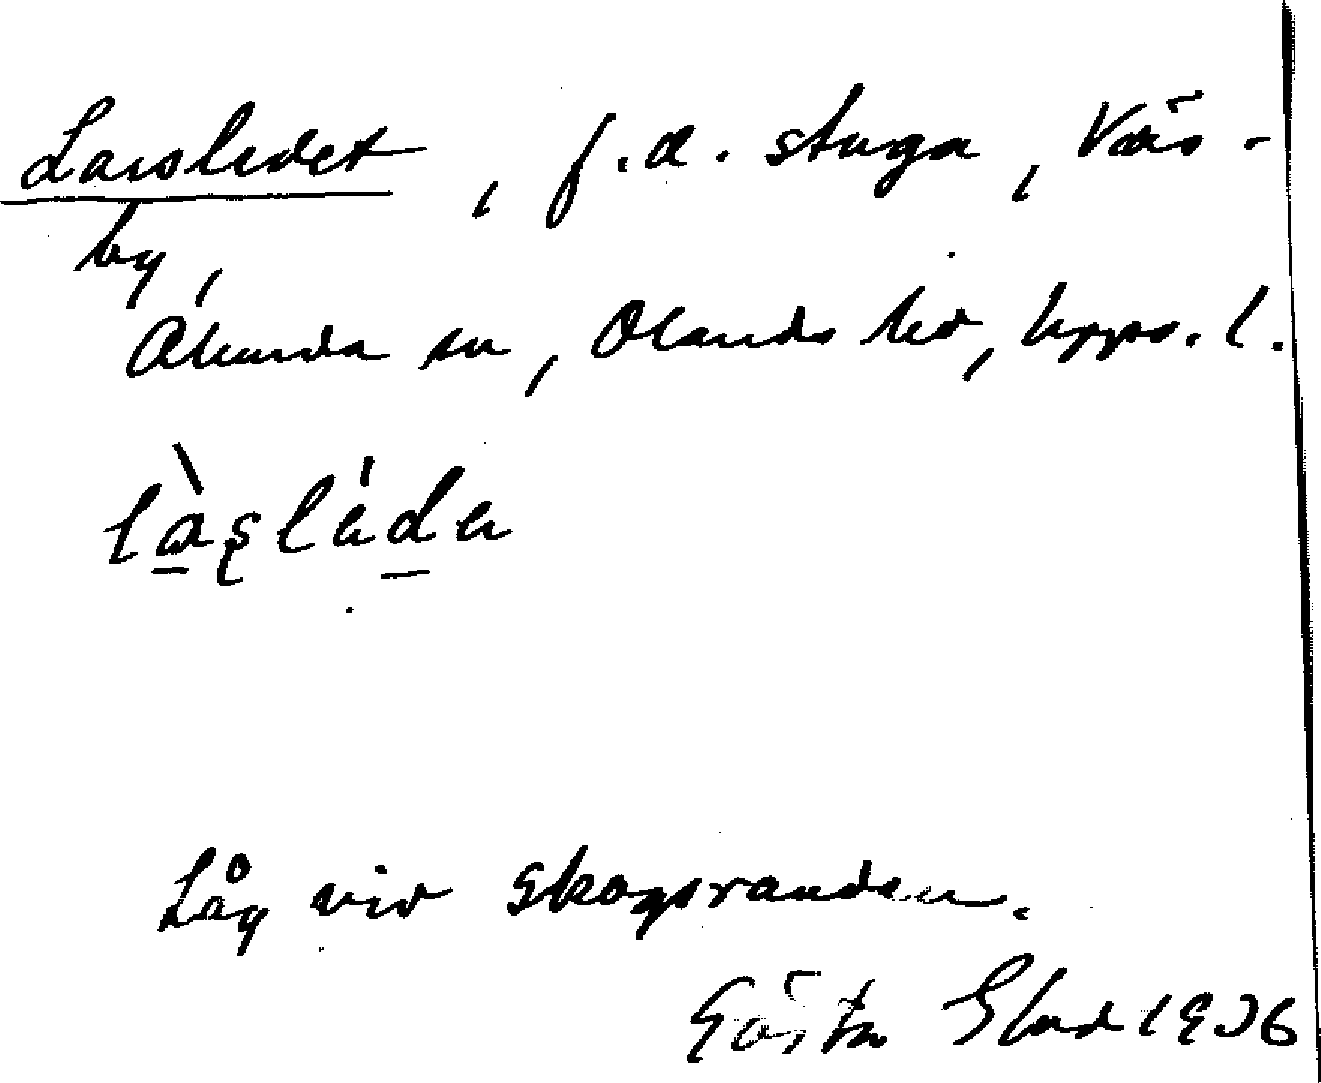 Larsledet, f.d. stuga, Väs-
by,
Åkerda sn, Olands hd, Upps. l.
Låg vid skogsranden.
Gösta Blad 1936